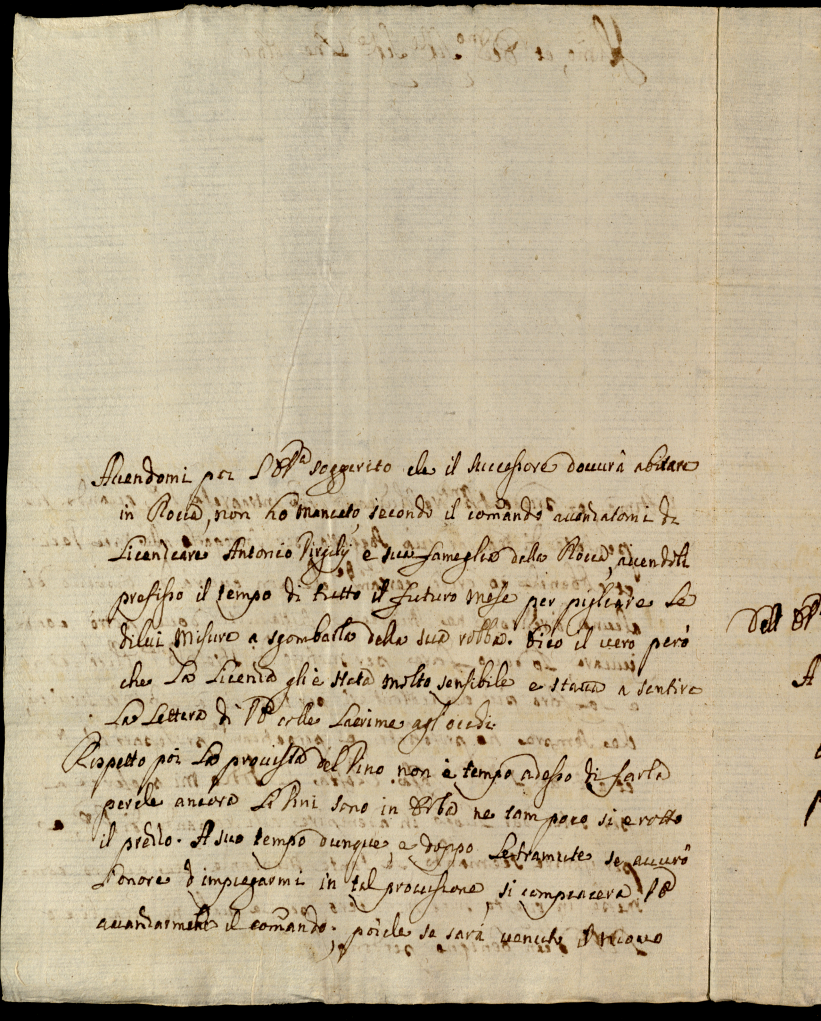 Avendomi poi L'Ill.ª soggerito che il successore dovurà abitare
in Rocca, non ho mancato, secondo il comando avanzatomi di
Licenziare Antonio Virgilij e sua fameglia dalla Rocca, avendoli
prefisso il tempo di tutto il futuro mese per pigliare le
dilui misure a sgombarla della sua robba. Dico il vero però
che La Licenza gli è stata molto sensibile e stava a sentire
La Lettera di colle Lacrime agl'occhi.
Rispetto poi La provista del Vino non è tempo adesso di farla
perche ancora Li Vini sono in ne tam poco si è rotto
il prezzo. A suo tempo dunque, e doppo se avurò
L'onore d'impiegarmi in tal provisione, si compiacerà
avanzarmene il comando; poiche se sarà venuto il nuovo
Dell'
A